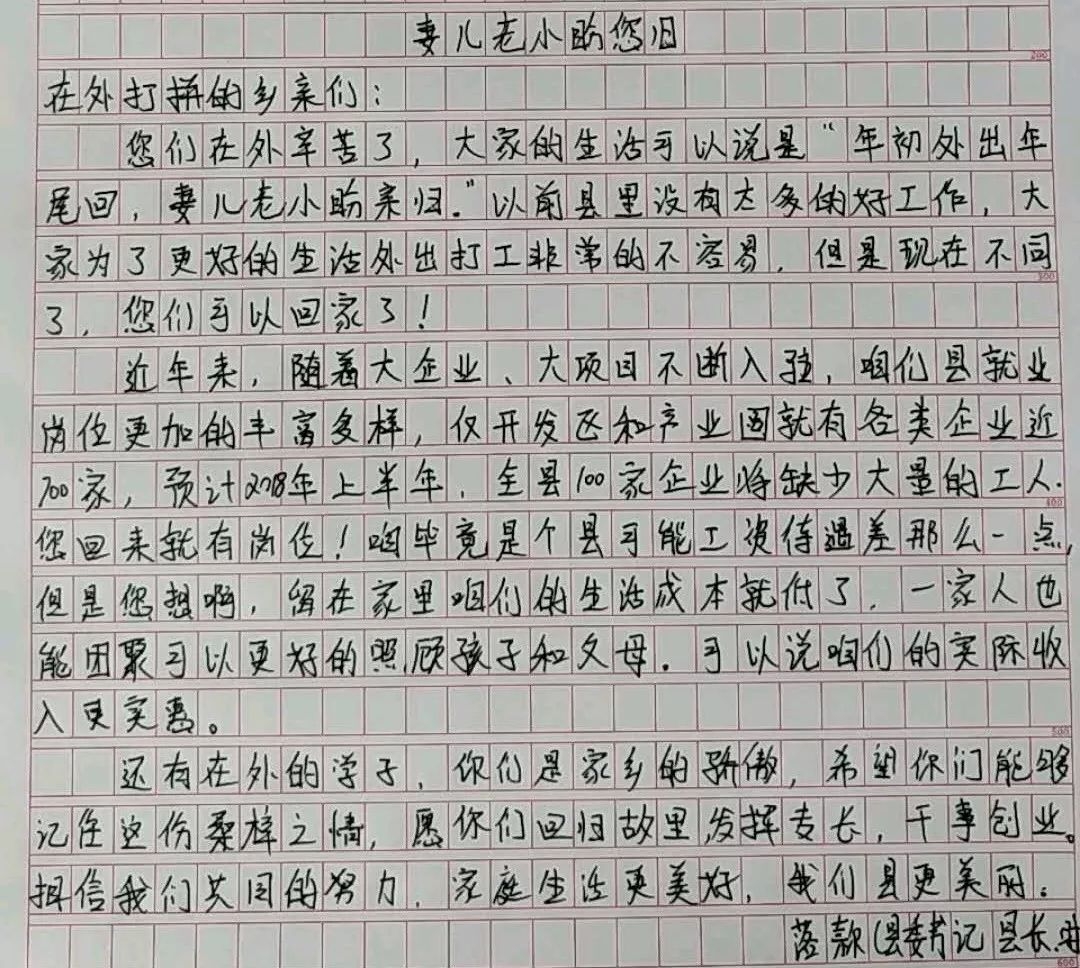 妻儿老小盼您归
200
在外打拼的乡亲们：
您们在外辛苦了，大家的生活可以说是“年初外出年
尾回，妻儿老小盼亲归。”以前县里没有太多的好工作，大
家为了更好的生活外出打工非常的不容易，但是现在不同
300
了，您们可以回家了！
近年来，随着大企业、大项目不断入驻，咱们县就业
岗位更加的丰富多样，仅开发区和产业园就有各类企业近
700家，预计2018年上半年，全县100家企业将缺少大量的工人.
400
您回来就有岗位！咱毕竟是个县可能工资待遇差那么一点，
但是您想啊，留在家里咱们的生活成本就低了，一家人也
能团聚可以更好的照顾孩子和父母。可以说咱们的实际收
入更实惠。
500
还有在外的学子，你们是家乡的骄傲，希望你们能够
记住这份桑梓之情，愿你们回归故里发挥专长，干事创业。
相信我们共同的努力，家庭生活更美好，我们县更美丽。
落款（县委书记 县长.
600